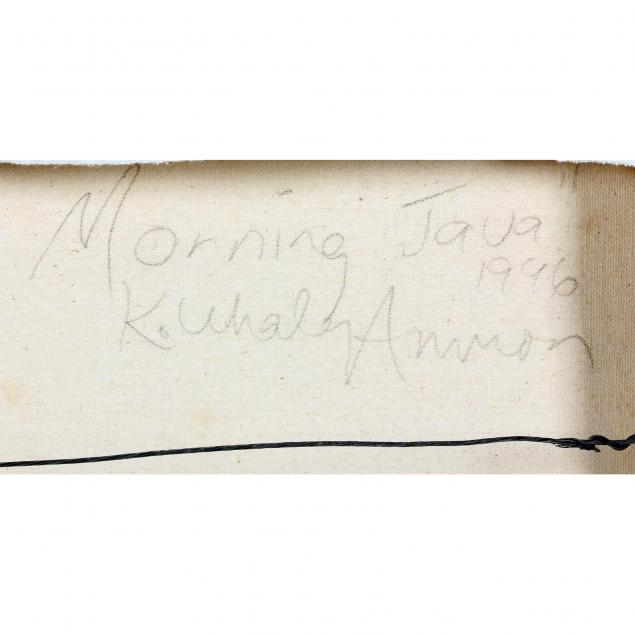 Morning Java"
1996
K. Whaley Ammon